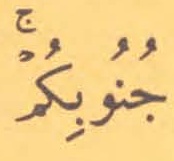 جُنُوبِكُمْ ۚ